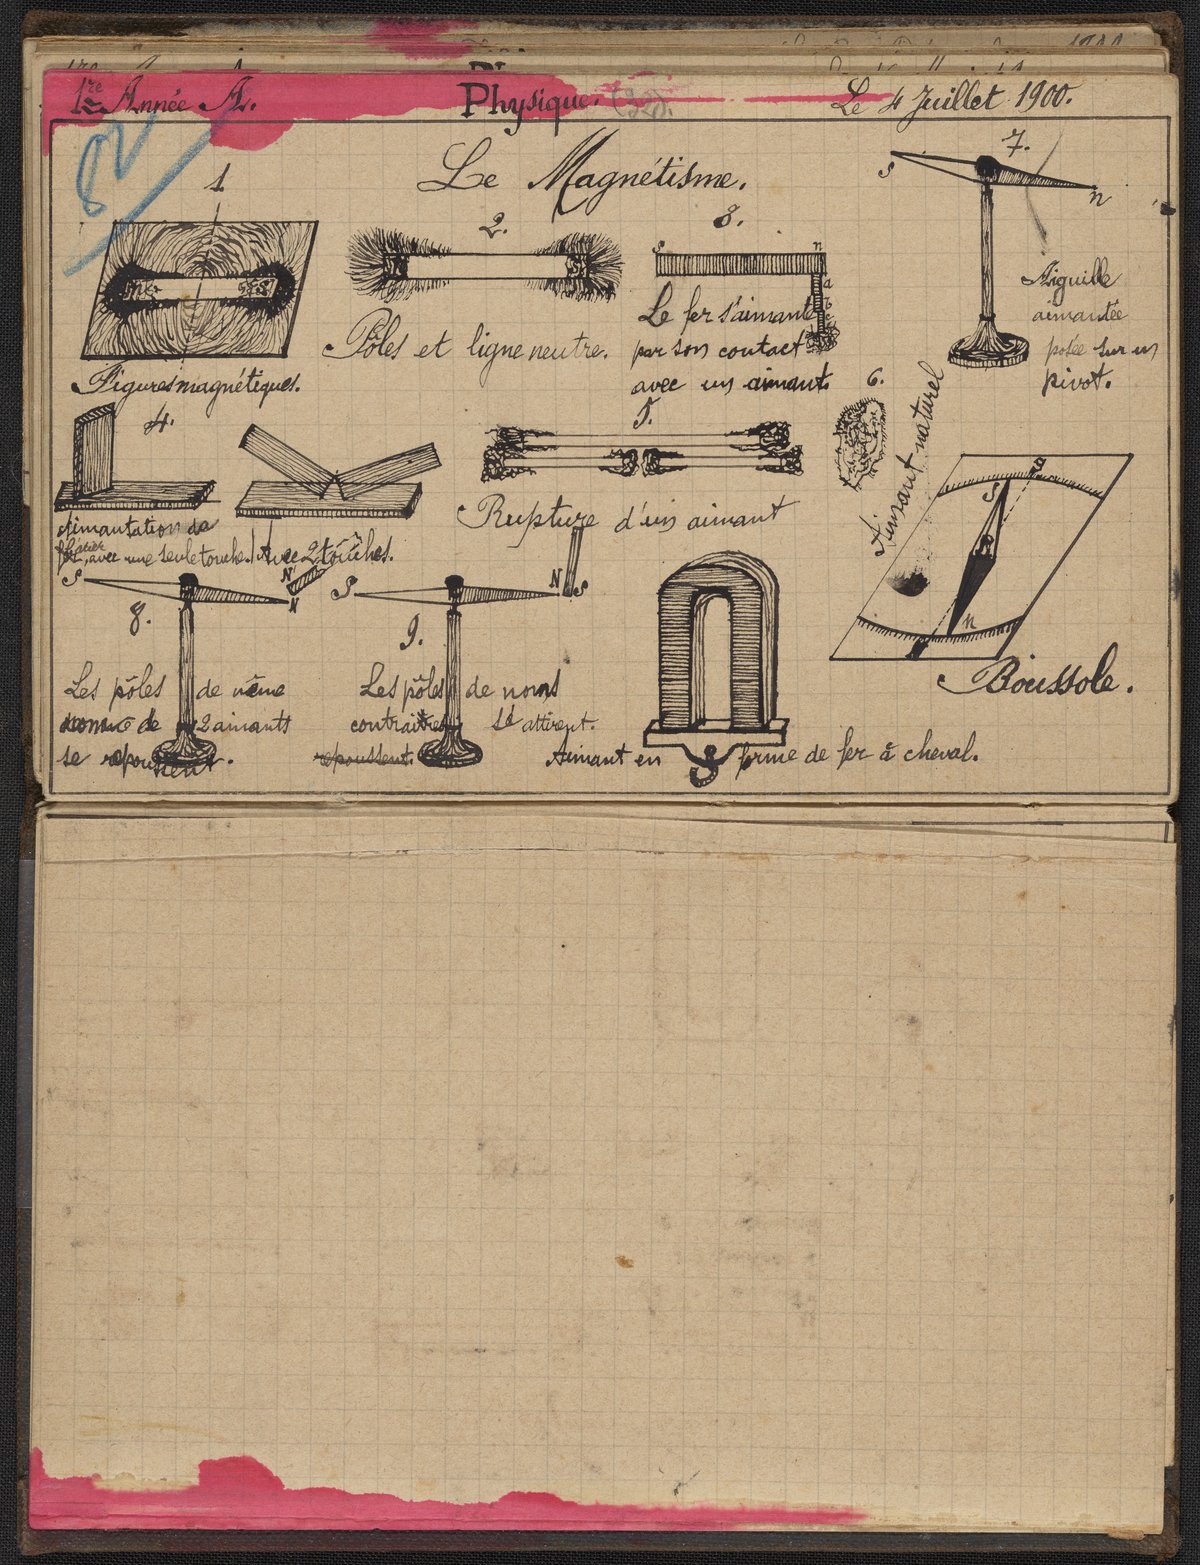 1re Année A.
Physique.
Le 4 Juillet 1900.
82
Le Magnétisme.
1
Figures magnétiques.
2.
Pôles et ligne neutre.
3.
S n
a
Le fer s'aimante
par son contact
avec un aimant.
7.
S n
Aiguille
aimantée
posée sur un
pivot.
4.
Aimantation de
avec une seule touche. Avec 2 touches.
5.
Rupture d'un aimant
6.
Aimant naturel
S
n
Boussole.
S N
N
8.
Les pôles de même
nome de 2 aimants
se repoussent.
S N S
9.
Les pôles de noms
contraires s'attirent.
repoussent.
Aimant en forme de fer à cheval.